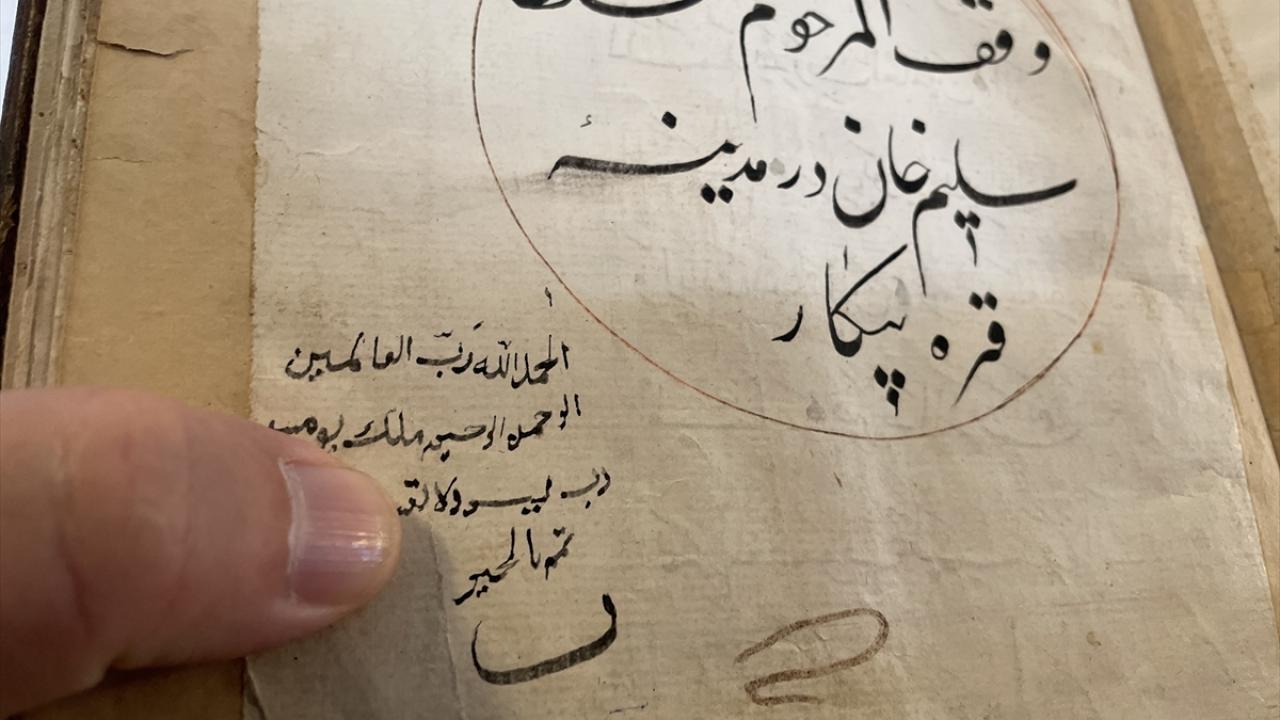 وقف المرحوم
سليم خان در مدينۀ
قره پیکار
الحمد الله رَبّ العالمين
الرحمن الرحيم ملك يوم
رب يسر ولا
تمم بالخير